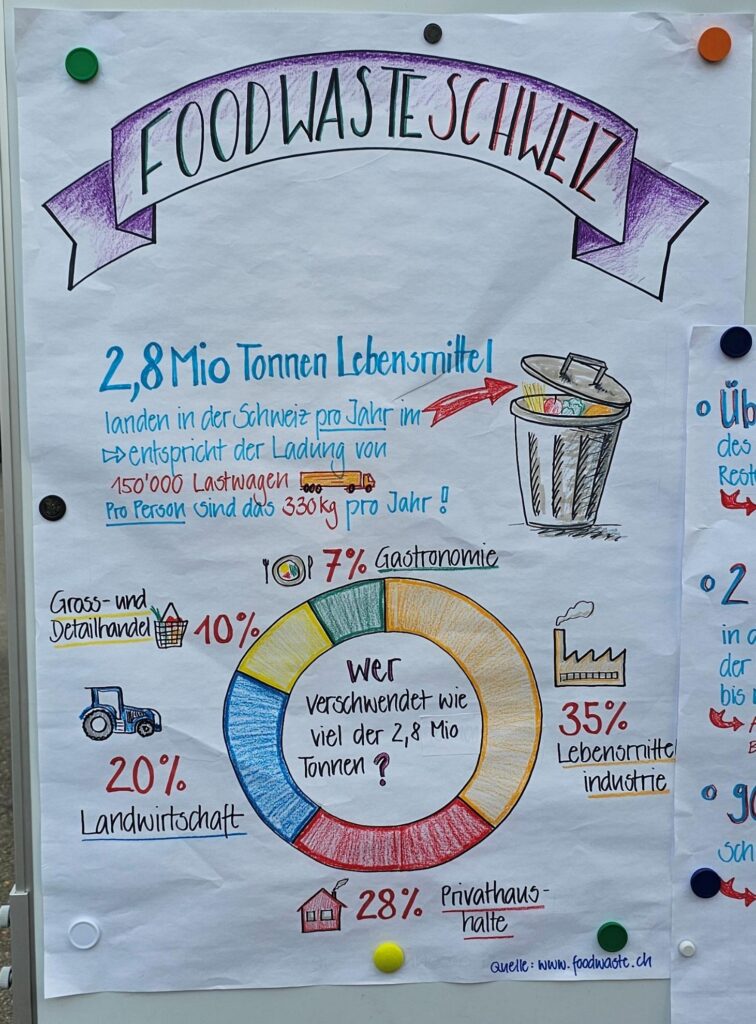 FOODWASTE SCHWEIZ
2,8 Mio Tonnen Lebensmittel
landen in der Schweiz pro Jahr im
⇨ entspricht der Ladung von
150'000 Lastwagen
Pro Person sind das 330kg pro Jahr!
7% Gastronomie
Gross- und
Detailhandel 10%
wer
verschwendet wie
viel der 2,8 Mio
Tonnen?
35%
Lebensmittel
industrie
20%
Landwirtschaft
28% Privathaus-
halte
Quelle: www.foodwaste.ch
des
2
der